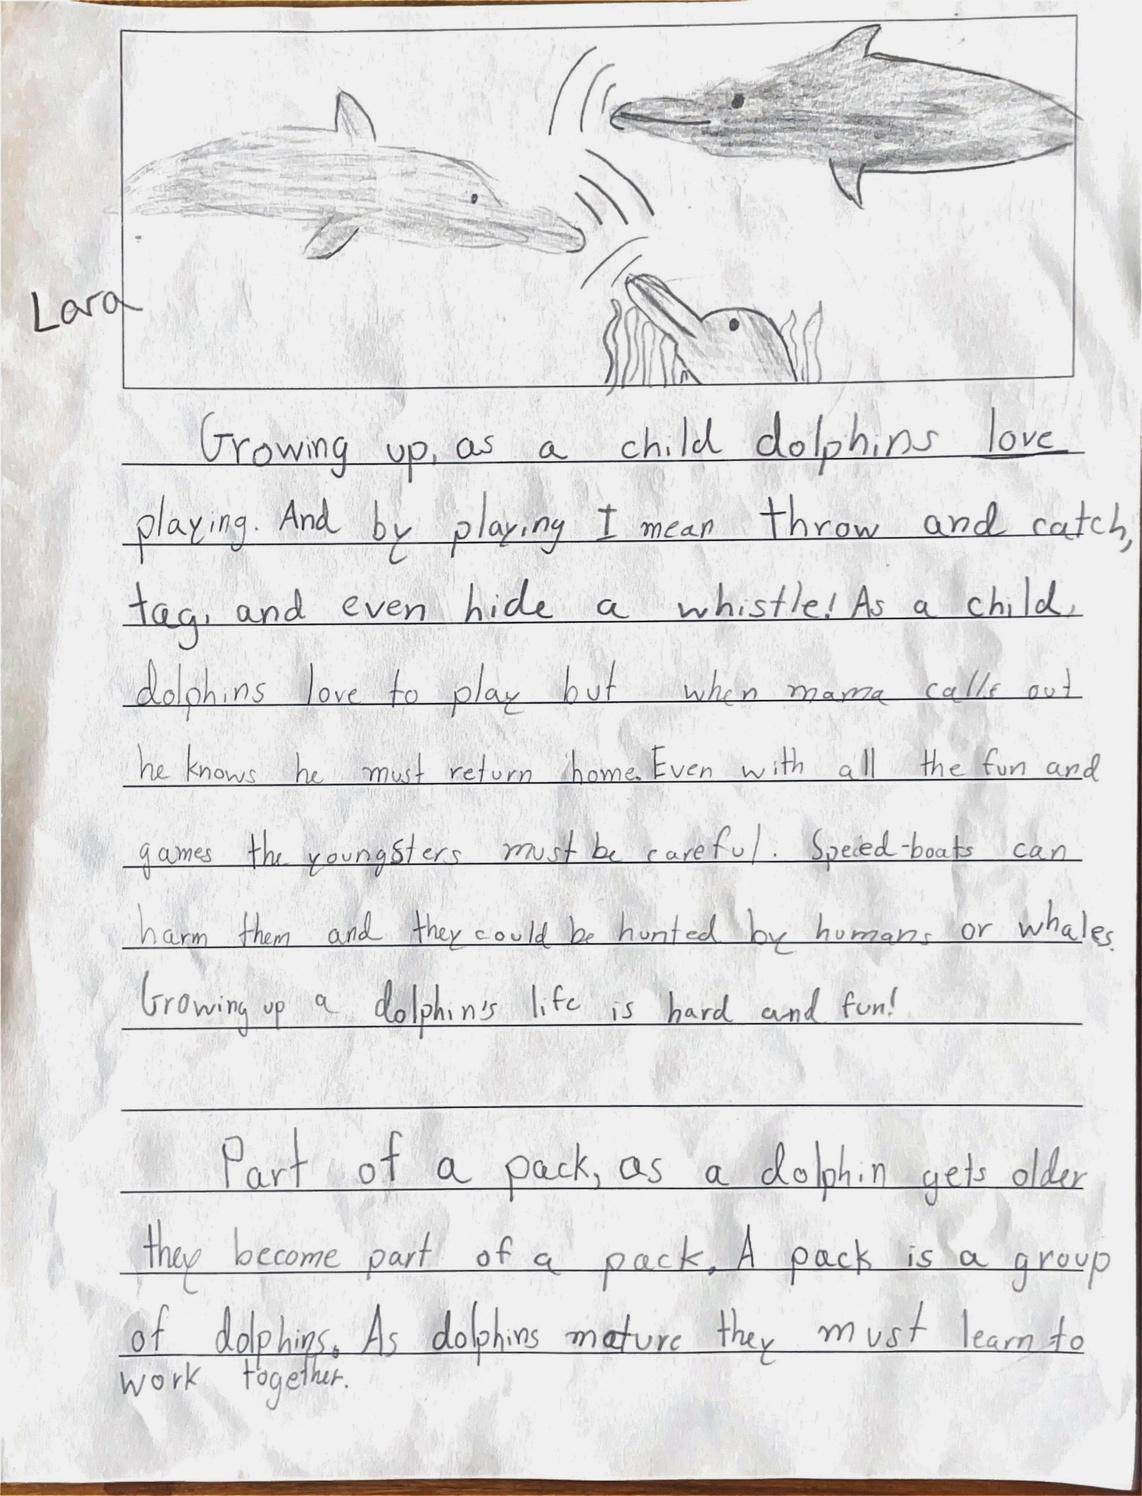 Lara
Growing up, as a child dolphins love
playing. And by playing I mean throw and catch,
tag, and even hide a whistle! As a child,
dolphins love to play but when mama calls out
he knows he must return home. Even with all the fun and
games the youngsters must be careful. Speed-boats can
harm them and they could be hunted by humans or whales.
Growing up a dolphin's life is hard and fun!
Part of a pack, as a dolphin gets older
they become part of a pack. A pack is a group
of dolphins. As dolphins mature they must learn to
work together.